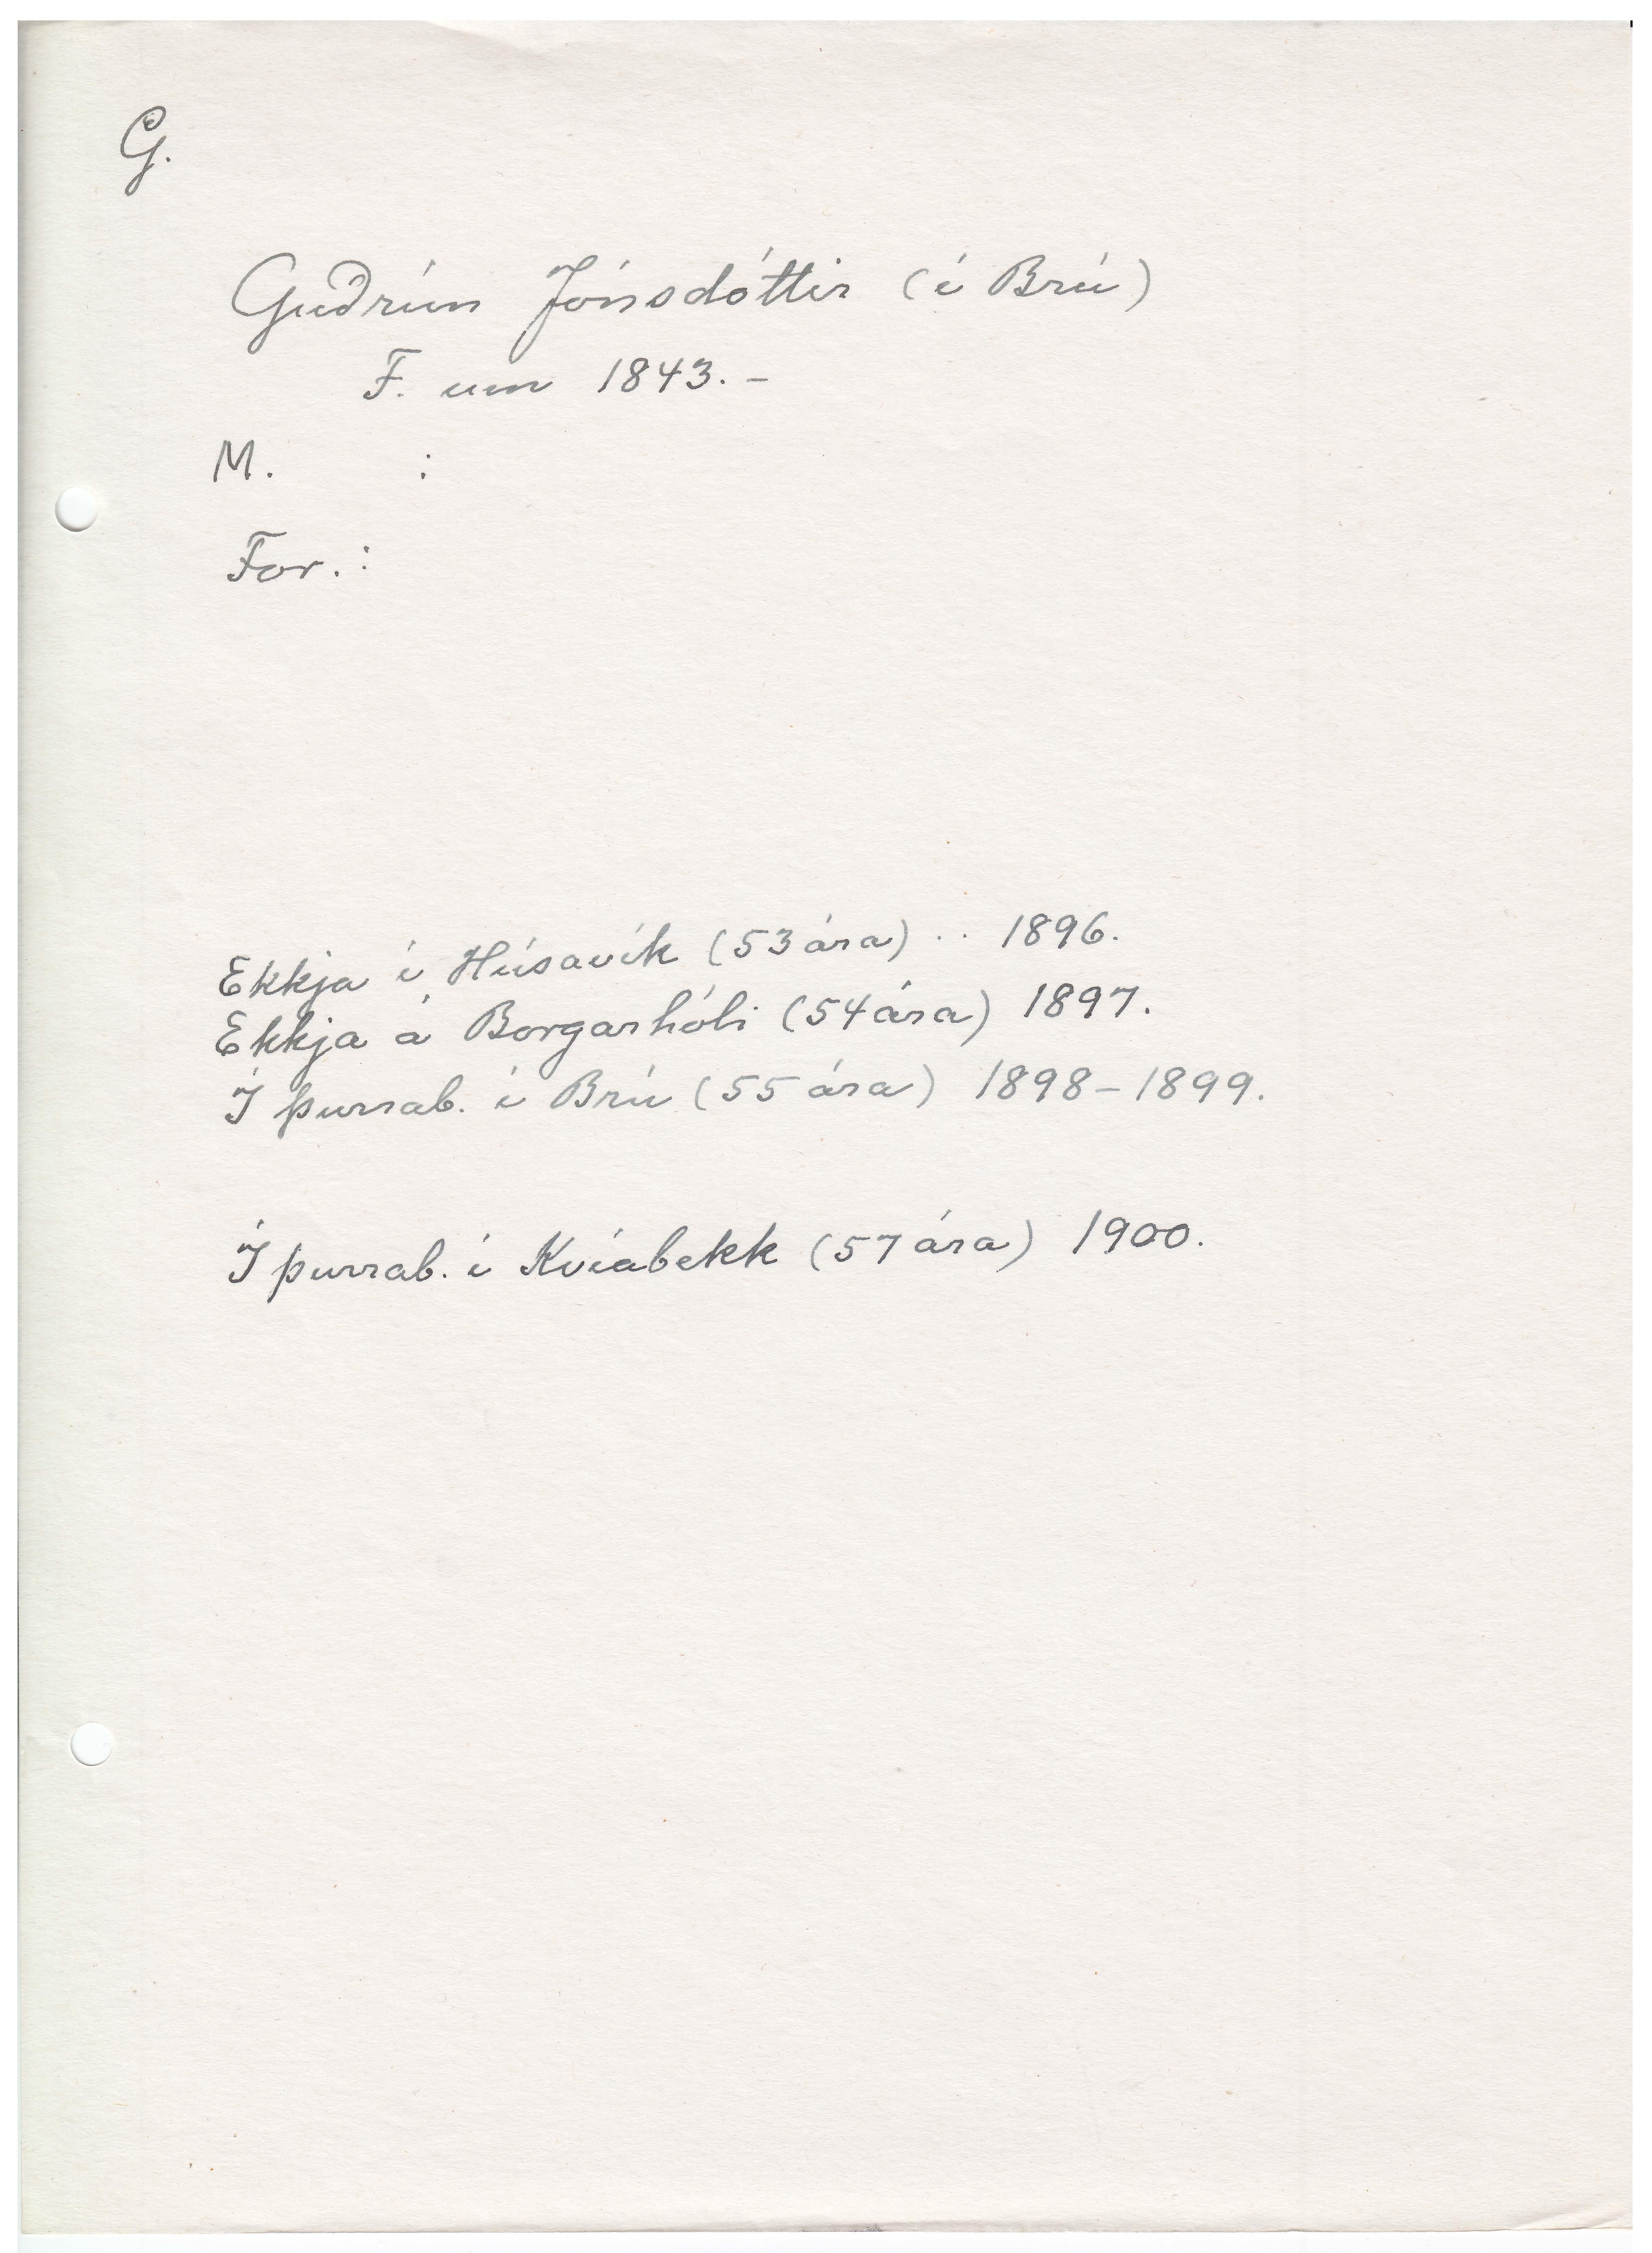 G.
Guðrún Jónsdóttir (í Brú)
F. um 1843. -
M. :
For. :
Ekkja í Húsavík (53 ára) .. 1896.
Ekkja á Borgarhóli (54 ára) 1897.
Í þurrab. í Brú (55 ára) 1898-1899.
Í þurrab. í Kvíabekk (57 ára) 1900.